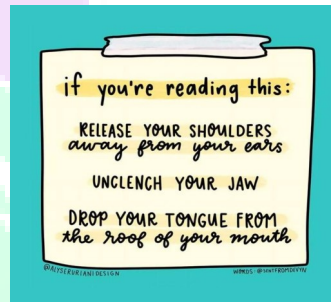 if you're reading this:
RELEASE YOUR SHOULDERS
away from your ears
UNCLENCH YOUR JAW
DROP YOUR TONGUE FROM
the roof of your mouth
@ALYSERURIANIDESIGN
WORDS: @1KHFROMDEVYN